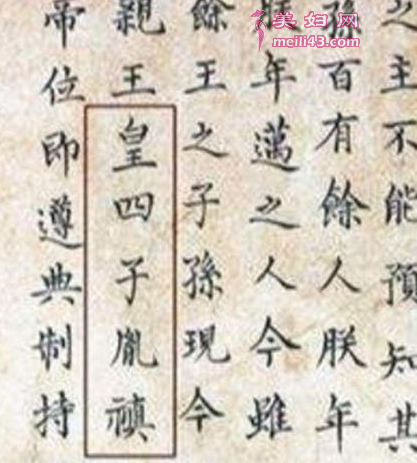 美妇网
meili43.com
之主不能預知其
孫百有餘人朕年
朕年邁之人今雖
餘王之子孫現今
親王皇四子胤禛
帝位即遵典制持